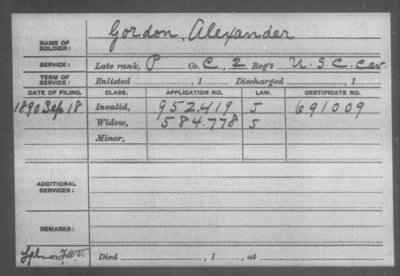 Gordon, Alexander
NAME OF SOLDIER:
SERVICE: Late rank, P Co. C, 2 Reg't U.S.C. Cav
TERM OF SERVICE: Enlisted , 1 Discharged , 1
DATE OF FILING. CLASS. APPLICATION NO. LAW. CERTIFICATE NO.
1890 Sep 18 Invalid, 952.419 J 691009
Widow, 584.778 J
Minor,
ADDITIONAL SERVICES:
REMARKS:
Died , 1 , at